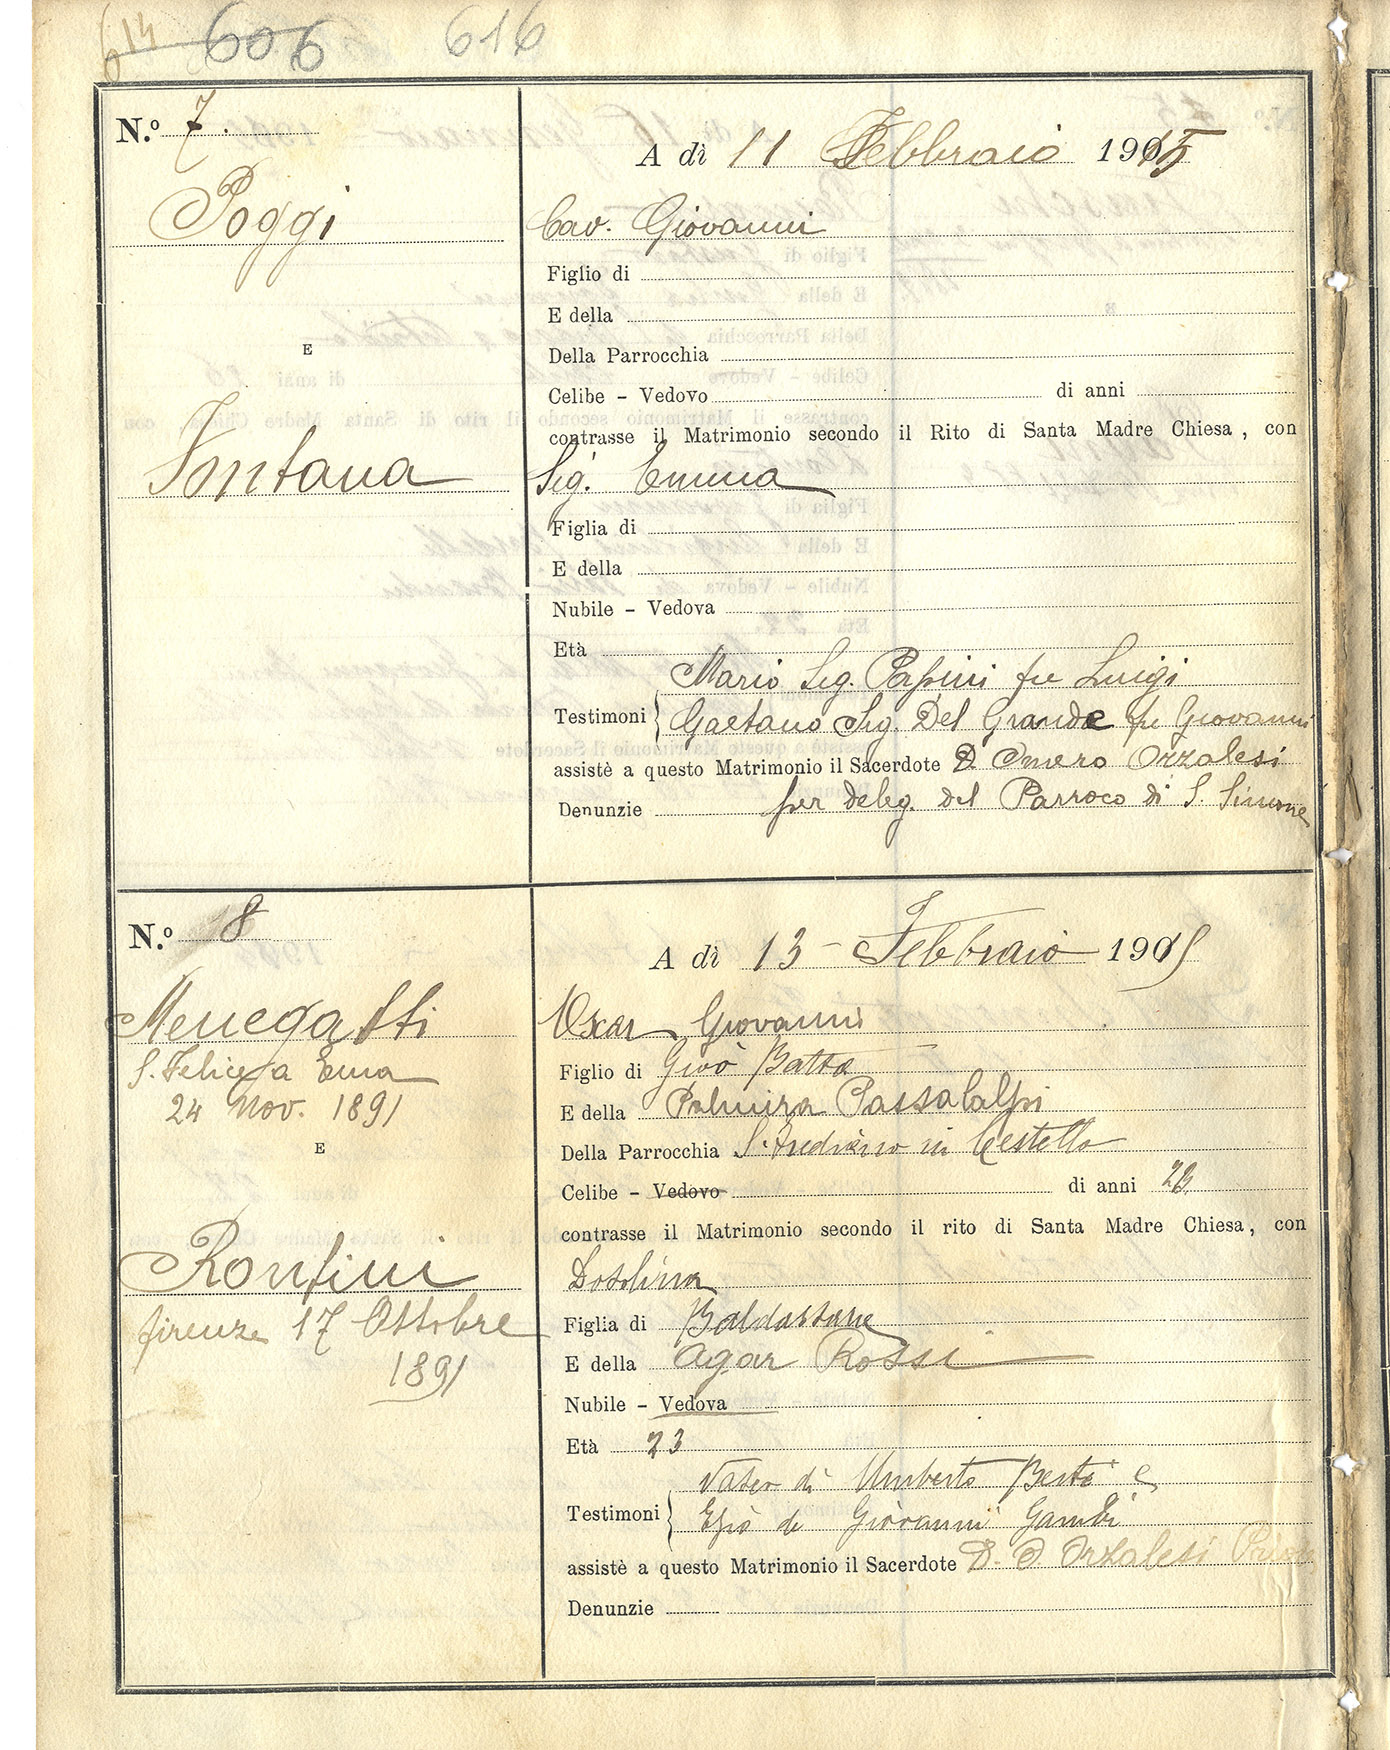 614 606 616
N.º 7.
A dì 11 Febbraio 1915
Poggi
Cav. Giovanni
Figlio di
E della
E
Della Parrocchia
Celibe - Vedovo di anni
contrasse il Matrimonio secondo il Rito di Santa Madre Chiesa, con
Fontana
Sig. Emma
Figlia di
E della
Nubile - Vedova
Età
Mario Sig. Papini fu Luigi
Testimoni
Gaetano Sig. Del Grande fu Giovanni
assistè a questo Matrimonio il Sacerdote D. Omero Orzalesi
Denunzie per deleg. del Parroco di S. Simone
N.º 8
A dì 13 - Febbraio 1915
Menegatti
Oscar Giovanni
S. Felice a Ema
24 Nov. 1891
Figlio di Giov Batta
E della Palmira
Della Parrocchia S. Frediano in Cestello
E
Celibe - Vedovo di anni 23
contrasse il Matrimonio secondo il rito di Santa Madre Chiesa, con
Ronfini
Dosolina
firenze 17 Ottobre
1891
Figlia di Baldassarre
E della Agar Rossi
Nubile - Vedova
Età 23
di Umberto Berti e
Testimoni
Ezio di Giovanni
assistè a questo Matrimonio il Sacerdote D. O. Orzalesi Priore
Denunzie